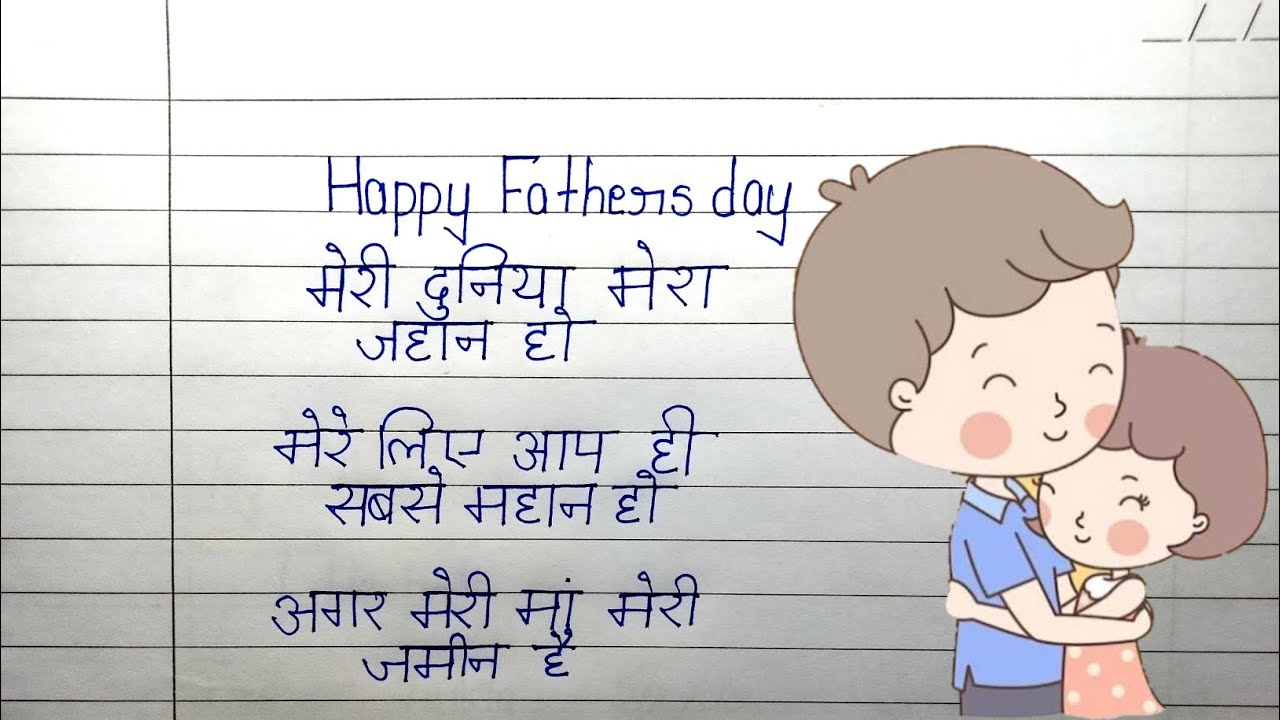 Happy Fathers day
मेरी दुनिया मेरा
जहान हो
मेरे लिए आप ही
सबसे महान हो
अगर मेरी मां मेरी
जमीन है